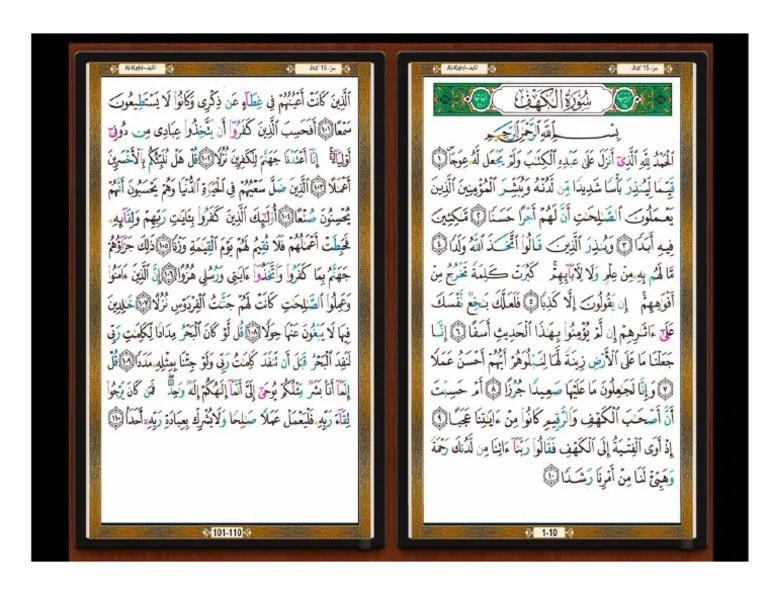 Al-Kahf-الكهف
Juz' 15 جزء
سُورَةُ الكَهْف
بِسْمِ ٱللَّهِ ٱلرَّحْمَٰنِ ٱلرَّحِيمِ
ٱلْحَمْدُ لِلَّهِ ٱلَّذِىٓ أَنزَلَ عَلَىٰ عَبْدِهِ ٱلْكِتَٰبَ وَلَمْ يَجْعَل لَّهُۥ عِوَجَا ۜ ١
قَيِّمًا لِّيُنذِرَ بَأْسًا شَدِيدًا مِّن لَّدُنْهُ وَيُبَشِّرَ ٱلْمُؤْمِنِينَ ٱلَّذِينَ
يَعْمَلُونَ ٱلصَّٰلِحَٰتِ أَنَّ لَهُمْ أَجْرًا حَسَنًا ٢ مَّٰكِثِينَ
فِيهِ أَبَدًا ٣ وَيُنذِرَ ٱلَّذِينَ قَالُوا۟ ٱتَّخَذَ ٱللَّهُ وَلَدًا ٤
مَّا لَهُم بِهِۦ مِنْ عِلْمٍ وَلَا لِءَابَآئِهِمْ ۚ كَبُرَتْ كَلِمَةً تَخْرُجُ مِنْ
أَفْوَٰهِهِمْ ۚ إِن يَقُولُونَ إِلَّا كَذِبًا ٥ فَلَعَلَّكَ بَٰخِعٌ نَّفْسَكَ
عَلَىٰٓ ءَاثَٰرِهِمْ إِن لَّمْ يُؤْمِنُوا۟ بِهَٰذَا ٱلْحَدِيثِ أَسَفًا ٦ إِنَّا
جَعَلْنَا مَا عَلَى ٱلْأَرْضِ زِينَةً لَّهَا لِنَبْلُوَهُمْ أَيُّهُمْ أَحْسَنُ عَمَلًا
٧ وَإِنَّا لَجَٰعِلُونَ مَا عَلَيْهَا صَعِيدًا جُرُزًا ٨ أَمْ حَسِبْتَ
أَنَّ أَصْحَٰبَ ٱلْكَهْفِ وَٱلرَّقِيمِ كَانُوا۟ مِنْ ءَايَٰتِنَا عَجَبًا ٩
إِذْ أَوَى ٱلْفِتْيَةُ إِلَى ٱلْكَهْفِ فَقَالُوا۟ رَبَّنَآ ءَاتِنَا مِن لَّدُنكَ رَحْمَةً
وَهَيِّئْ لَنَا مِنْ أَمْرِنَا رَشَدًا ١٠
1-10
Al-Kahf-الكهف
Juz' 15 جزء
ٱلَّذِينَ كَانَتْ أَعْيُنُهُمْ فِى غِطَآءٍ عَن ذِكْرِى وَكَانُوا۟ لَا يَسْتَطِيعُونَ
سَمْعًا ١٠١ أَفَحَسِبَ ٱلَّذِينَ كَفَرُوٓا۟ أَن يَتَّخِذُوا۟ عِبَادِى مِن دُونِىٓ
أَوْلِيَآءَ ۚ إِنَّآ أَعْتَدْنَا جَهَنَّمَ لِلْكَٰفِرِينَ نُزُلًا ١٠٢ قُلْ هَلْ نُنَبِّئُكُم بِٱلْأَخْسَرِينَ
أَعْمَٰلًا ١٠٣ ٱلَّذِينَ ضَلَّ سَعْيُهُمْ فِى ٱلْحَيَوٰةِ ٱلدُّنْيَا وَهُمْ يَحْسَبُونَ أَنَّهُمْ
يُحْسِنُونَ صُنْعًا ١٠٤ أُو۟لَٰٓئِكَ ٱلَّذِينَ كَفَرُوا۟ بِـَٔايَٰتِ رَبِّهِمْ وَلِقَآئِهِۦ
فَحَبِطَتْ أَعْمَٰلُهُمْ فَلَا نُقِيمُ لَهُمْ يَوْمَ ٱلْقِيَٰمَةِ وَزْنًا ١٠٥ ذَٰلِكَ جَزَآؤُهُمْ
جَهَنَّمُ بِمَا كَفَرُوا۟ وَٱتَّخَذُوٓا۟ ءَايَٰتِى وَرُسُلِى هُزُوًا ١٠٦ إِنَّ ٱلَّذِينَ ءَامَنُوا۟
وَعَمِلُوا۟ ٱلصَّٰلِحَٰتِ كَانَتْ لَهُمْ جَنَّٰتُ ٱلْفِرْدَوْسِ نُزُلًا ١٠٧ خَٰلِدِينَ
فِيهَا لَا يَبْغُونَ عَنْهَا حِوَلًا ١٠٨ قُل لَّوْ كَانَ ٱلْبَحْرُ مِدَادًا لِّكَلِمَٰتِ رَبِّى
لَنَفِدَ ٱلْبَحْرُ قَبْلَ أَن تَنفَدَ كَلِمَٰتُ رَبِّى وَلَوْ جِئْنَا بِمِثْلِهِۦ مَدَدًا ١٠٩ قُلْ
إِنَّمَآ أَنَا۠ بَشَرٌ مِّثْلُكُمْ يُوحَىٰٓ إِلَىَّ أَنَّمَآ إِلَٰهُكُمْ إِلَٰهٌ وَٰحِدٌ ۖ فَمَن كَانَ يَرْجُوا۟
لِقَآءَ رَبِّهِۦ فَلْيَعْمَلْ عَمَلًا صَٰلِحًا وَلَا يُشْرِكْ بِعِبَادَةِ رَبِّهِۦٓ أَحَدًۢا ١١٠
101-110